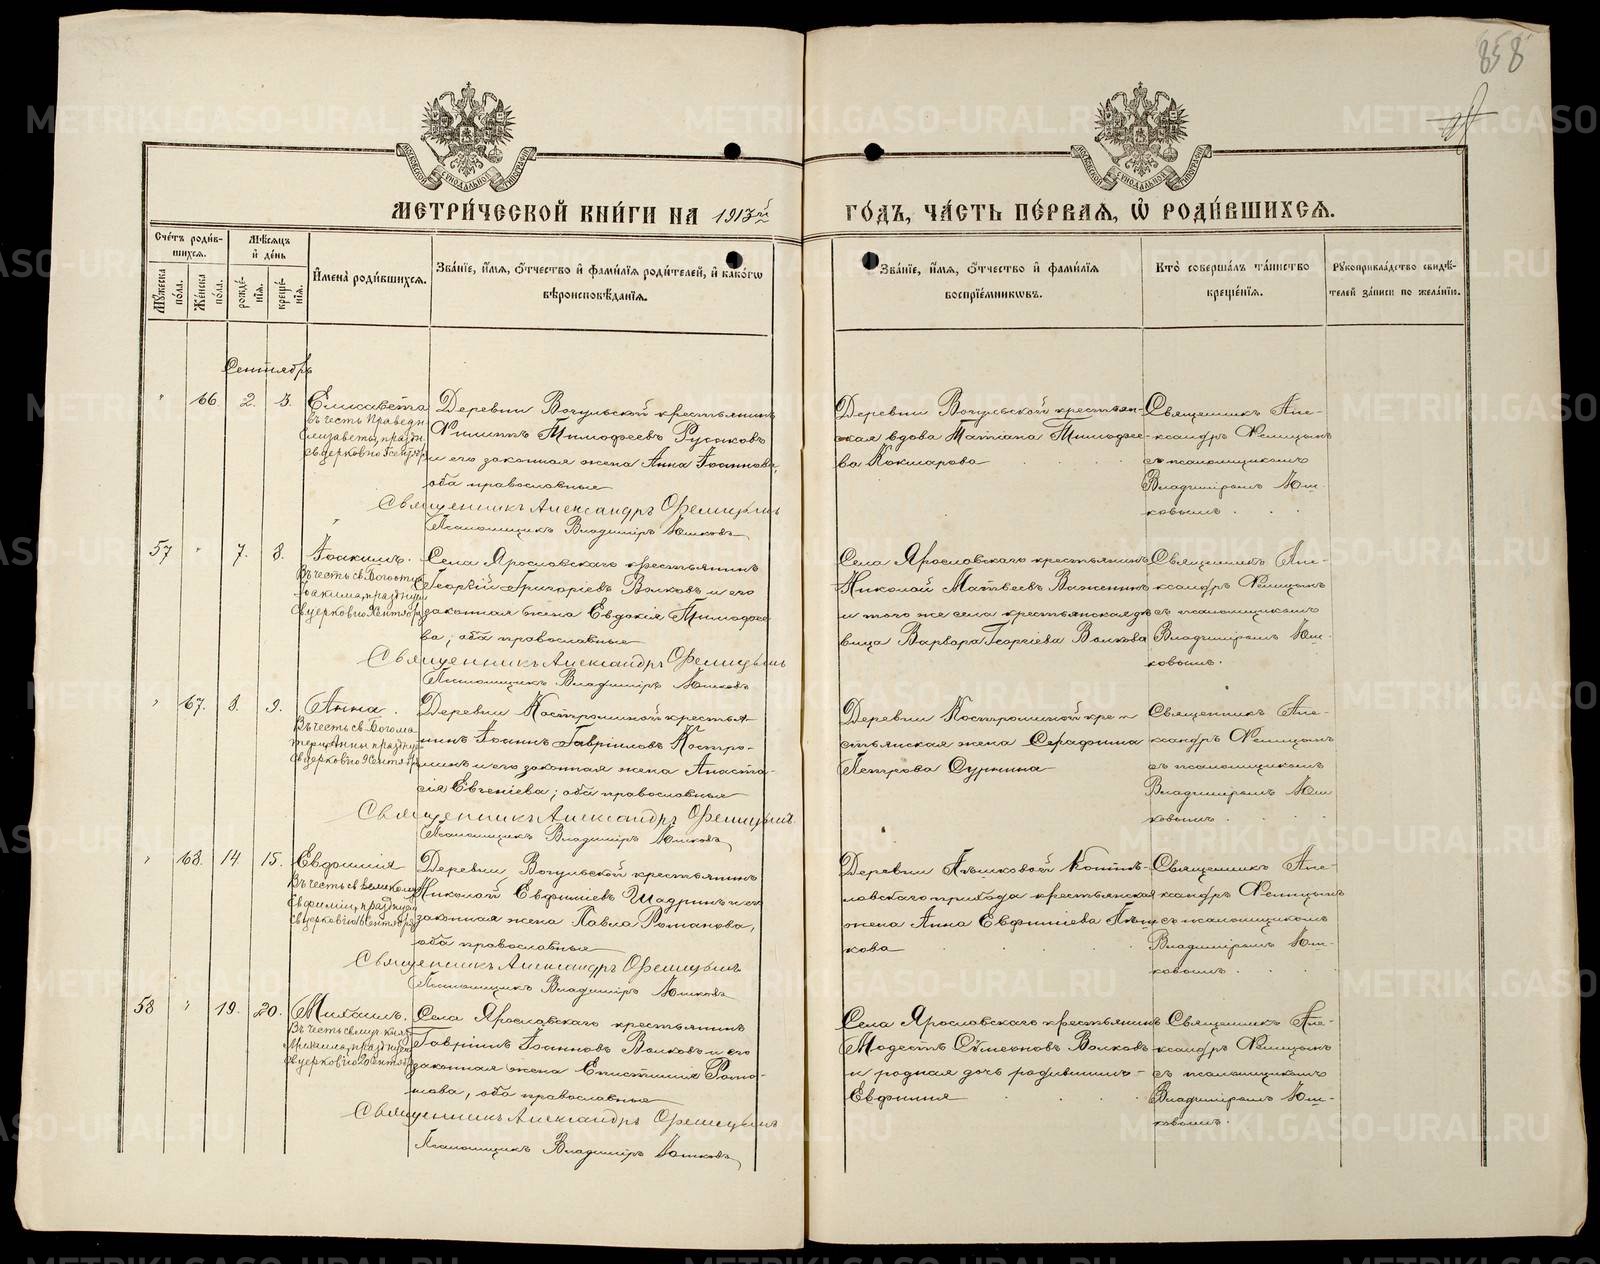 858
МЕТРИ́ЧЕСКОЙ КНИ́ГИ НА 1913й
ГО́ДЪ, ЧА́СТЬ ПЕ́РВАЯ, Ѡ РОДИ́ВШИХСЯ.
Сче́тъ роди́в-
шихся.
Му́жеска
по́ла.
Же́нска
по́ла.
Мѣ́сяцъ
и҆ де́нь
рожде́-
нїя.
креще́-
нїя.
И҆мена̀ роди́вшихся.
Зва́нїе, и҆́мя, ѻ҆́тчество и҆ фами́лїя роди́телей, и҆ како́гѡ
вѣроисповѣ́данїя.
Зва́нїе, и҆́мя, ѻ҆́тчество и҆ фами́лїя
воспрїе́мниковъ.
Кто̀ соверша́лъ та́инство
креще́нїя.
Рꙋкоприкла́дство свидѣ́-
телей за́писи по жела́нїю.
Сентябрь
" 66. 2. 3. Елисавета
Въ честь Праведн.
Елизаветы, праздн.
св. церковію 5 сентябр.
Деревни Вогульской крестьянинъ
Филиппъ Тимофеевъ Русаковъ
и его законная жена Анна Іоаннова,
оба православные
Священникъ Александръ Фелицынъ
Псаломщикъ Владиміръ Юшковъ
Деревни Вогульской крестьян-
ская вдова Татіана Тимофее-
ва Кокшарова
Священникъ Але-
ксандръ Фелицынъ
съ псаломщикомъ
Владиміромъ Юш-
ковымъ.
57 " 7. 8. Іоакимъ.
Въ честь св. Богоотца
Іоакима, праздну
св. церковію 9 сентябр.
Села Ярославскаго крестьянинъ
Георгій Григоріевъ Волковъ и его
законная жена Евдокія Тимофее-
ва; оба православные
Священникъ Александръ Фелицынъ
Псаломщикъ Владиміръ Юшковъ
Села Ярославскаго крестьянинъ
Николай Матвѣевъ Важенинъ
и того же села крестьянская дѣ-
вица Варвара Георгіева Волкова
Священникъ Але-
ксандръ Фелицынъ
съ псаломщикомъ
Владиміромъ Юш-
ковымъ.
" 67. 8. 9. Анна.
Въ честь св. Богома
тери Анны праздну
св. церковію 9 сентяб.
Деревни Костроминой крестья-
нинъ Іоаннъ Гавріиловъ Костро-
минъ и его законная жена Анаста-
сія Евгеніева; оба православные
Священникъ Александръ Фелицынъ
Псаломщикъ Владиміръ Юшковъ
Деревни Костроминой кре-
стьянская жена Серафима
Петрова Сурнина
Священникъ Але-
ксандръ Фелицынъ
съ псаломщикомъ
Владиміромъ Юш
ковымъ.
" 68. 14. 15. Евфимія
Въ честь св. великом.
Евфиміи, празднуем
св. церковію 16 сентября
Деревни Вогульской крестьянинъ
Николай Евфиміевъ Шадринъ и его
законная жена Павла Романова,
оба православные
Священникъ Александръ Фелицынъ
Псаломщикъ Владиміръ Юшковъ
Деревни
ловскаго прихода крестьянская
жена Анна Евфиміева Пѣш-
кова
Священникъ Але-
ксандръ Фелицынъ
съ псаломщикомъ
Владиміромъ Юш-
ковымъ.
58 " 19. 20. Михаилъ.
Въ честь св. муч. князя
Михаила, празднуем
св. церковію 20 сентября
Села Ярославскаго крестьянинъ
Гавріилъ Іоанновъ Волковъ и его
законная жена Епистимія Рома-
нова, оба православные
Священникъ Александръ Фелицынъ
Псаломщикъ Владиміръ Юшковъ
Села Ярославскаго крестьянинъ
Модестъ Сѵмеоновъ Волковъ
и родная дочь родившихъ-
Евфимія
Священникъ Але-
ксандръ Фелицынъ
съ псаломщикомъ
Владиміромъ Юш-
ковымъ.
METRIKI.GASO-URAL.RU